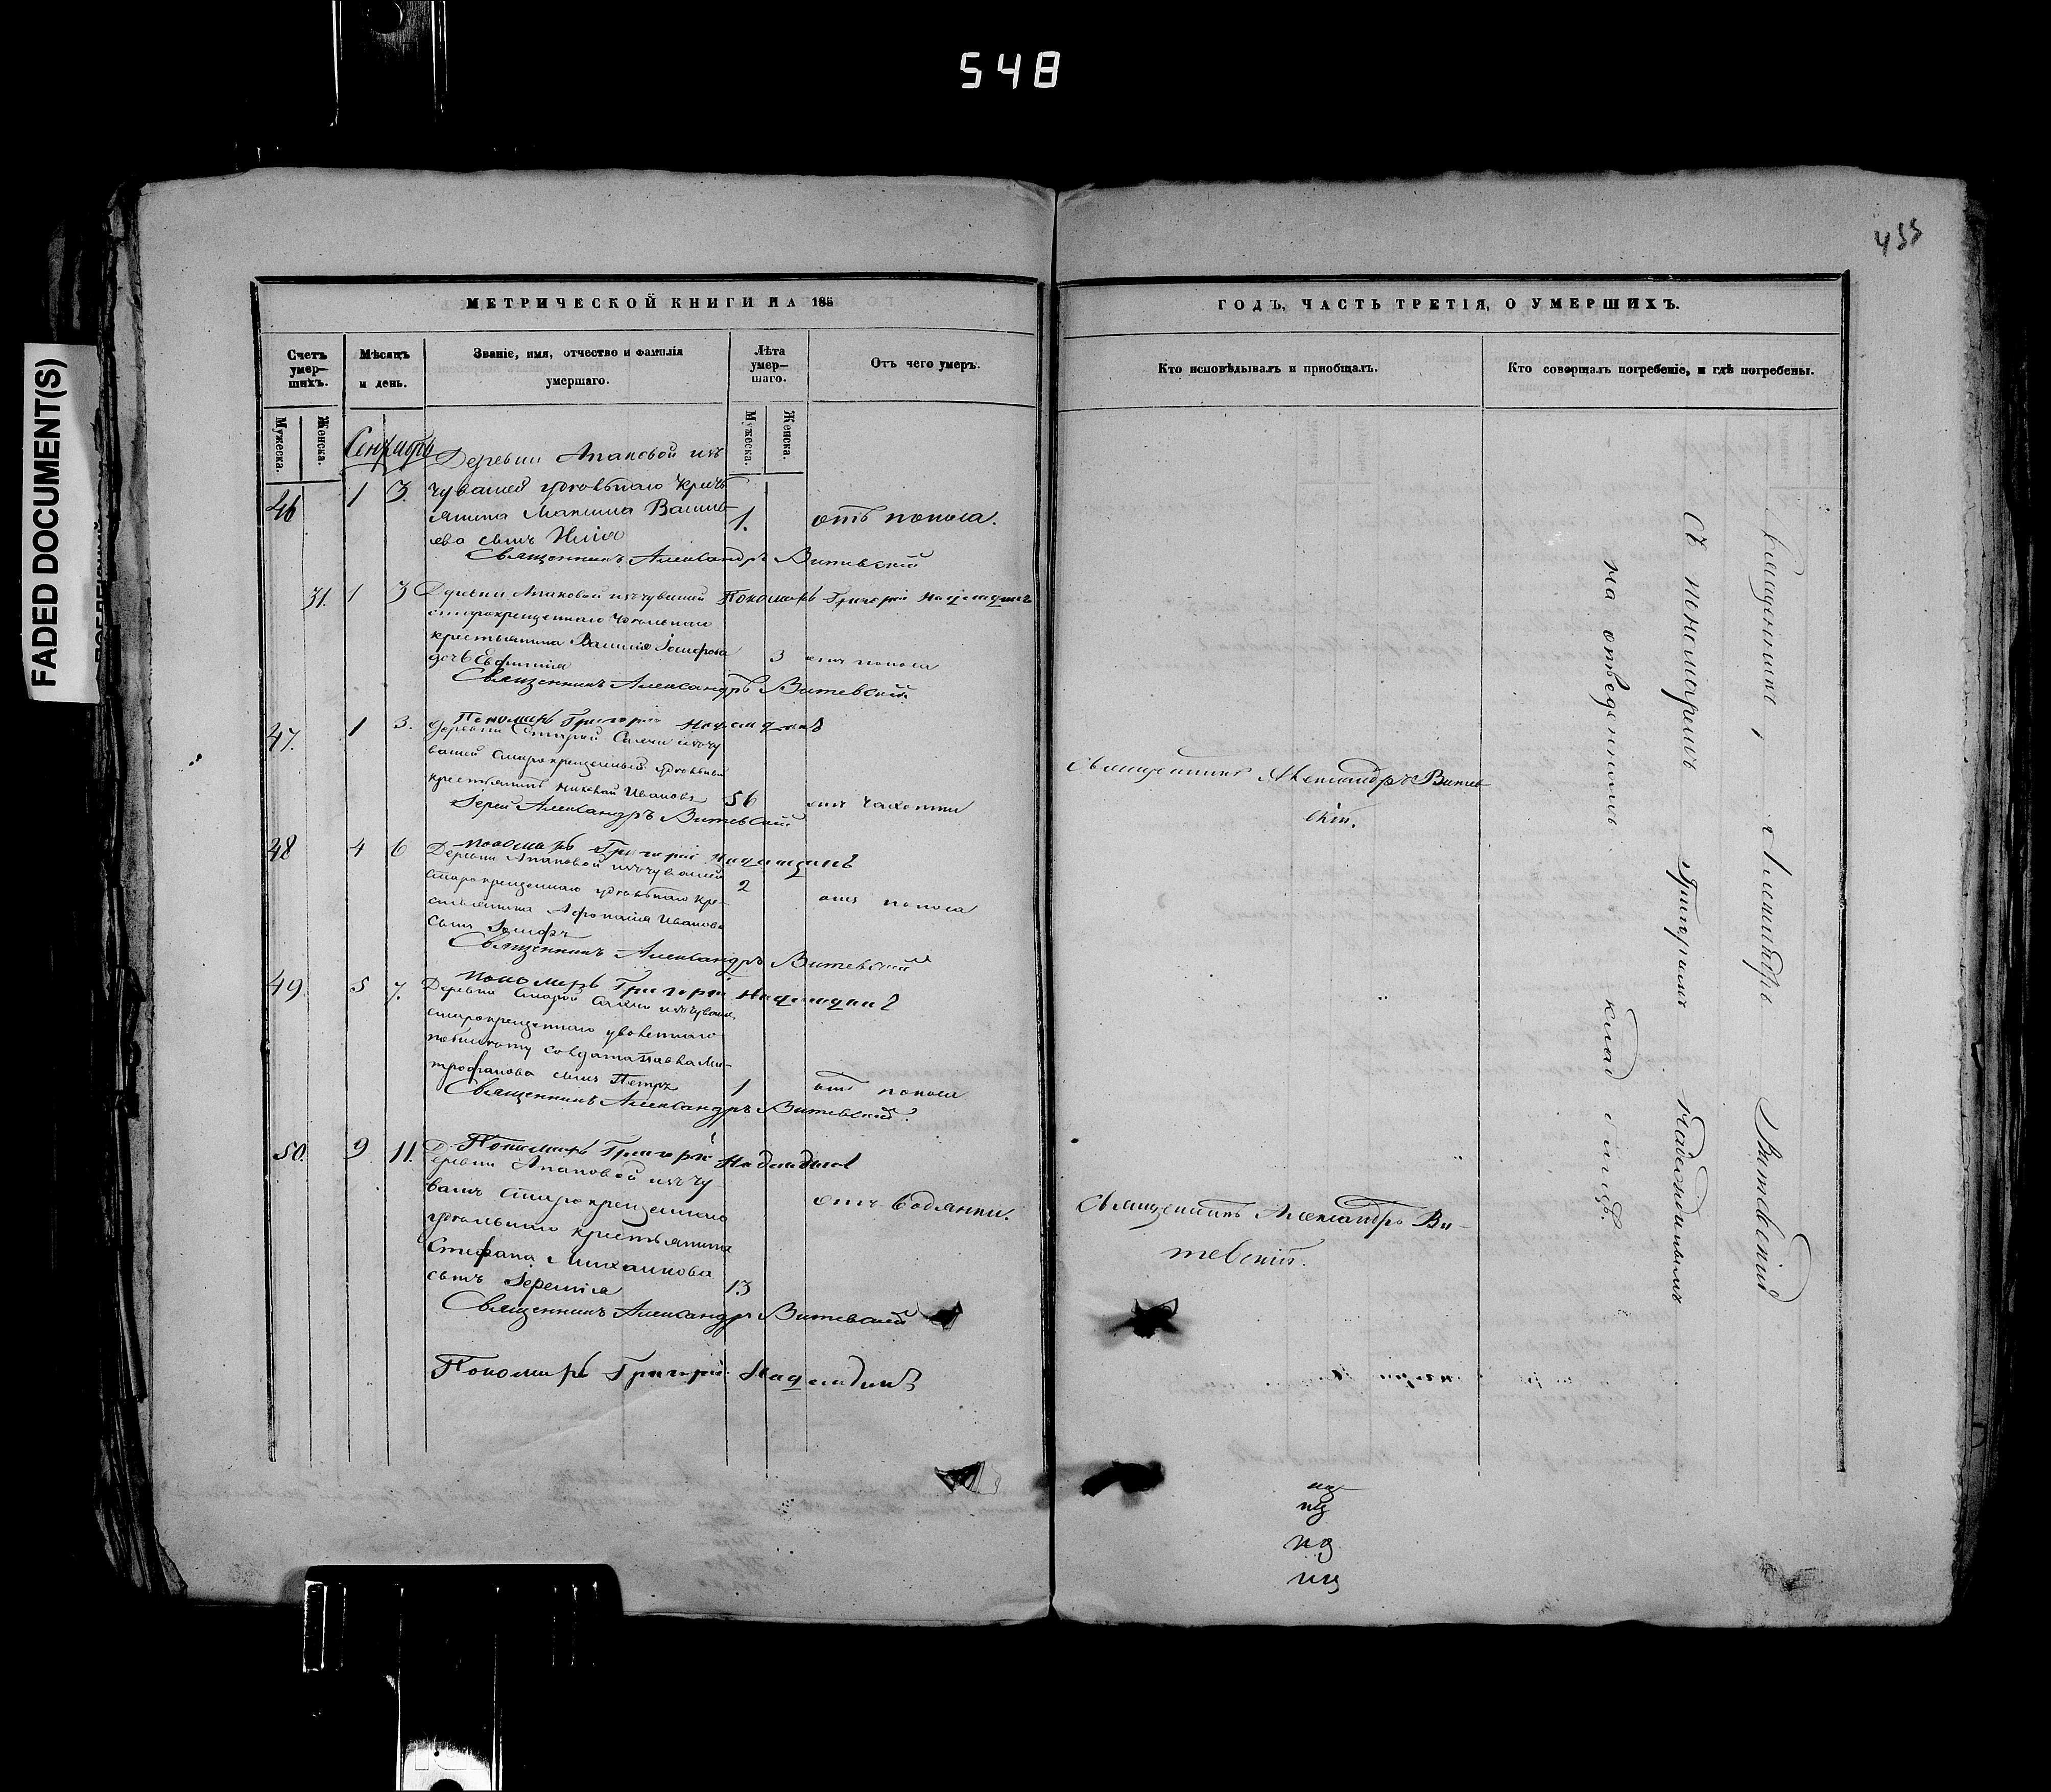 548
455
FADED DOCUMENT(S)
МЕТРИЧЕСКОЙ КНИГИ НА 185
Счетъ умер-шихъ.
Мѣсяцъ и день.
Званіе, имя, отчество и фамилія умершаго.
Лѣта умер-шаго.
Отъ чего умеръ.
Мужеска.
Женска.
Мужеска.
Женска.
Сентябрь
Деревни Апаковой изъ
46 1 3. чувашей удѣльнаго крестъ
янина Максима Василь
1. отъ поноса.
ева сынъ Илія
Священникъ Александръ Витевскій
Пономарь Григорій Надеждинъ
31. 1 3 Деревни Апаковой изъ чувашей
старокрещеннаго удѣльнаго
крестьянина Василія Іосифова
дочь Евфимія 3 отъ поноса
Священникъ Александръ Витевскій.
Пономарь Григорій Надеждинъ
47. 1 3. Деревни Старой изъ чу
вашей старокрещеный удѣльный
крестьянинъ Николай Ивановъ 56 отъ чахотки
Іерей Александръ Витевскій
Пономарь Григорій Надеждинъ
48 4 6 Деревни Апаковой изъ чувашей
старокрещеннаго удѣльнаго кре-
2 отъ поноса
стьянина Афонасія Иванова
сынъ Іосифъ
Священникъ Александръ Витевскій
Пономарь Григорій Надеждинъ
49 5 7. Деревни Старой изъ чуваш.
старокрещеннаго
солдата Ми-
трофанова сынъ Петръ 1 отъ поноса
Священникъ Александръ Витевскій.
Пономарь Григорій Надеждинъ
50. 9 11. Деревни Апаковой изъ чу
вашъ старокрещеннаго отъ водянки.
удѣльнаго крестьянина
Стефана Михайлова
сынъ Іеремія 13
Священникъ Александръ Витевскій
Пономарь Григорій Надеждинъ
ГОДЪ, ЧАСТЬ ТРЕТІЯ, О УМЕРШИХЪ.
Кто исповѣдывалъ и пріобщалъ.
Кто совершалъ погребеніе, и гдѣ погребены.
Священникъ Александръ Витев
скій.
Священникъ Александръ Ви-
тевскій.
Священникъ, Александръ Витевскій
съ пономаремъ Григоріемъ Надеждинымъ
на отведенномъ кладбищѣ.